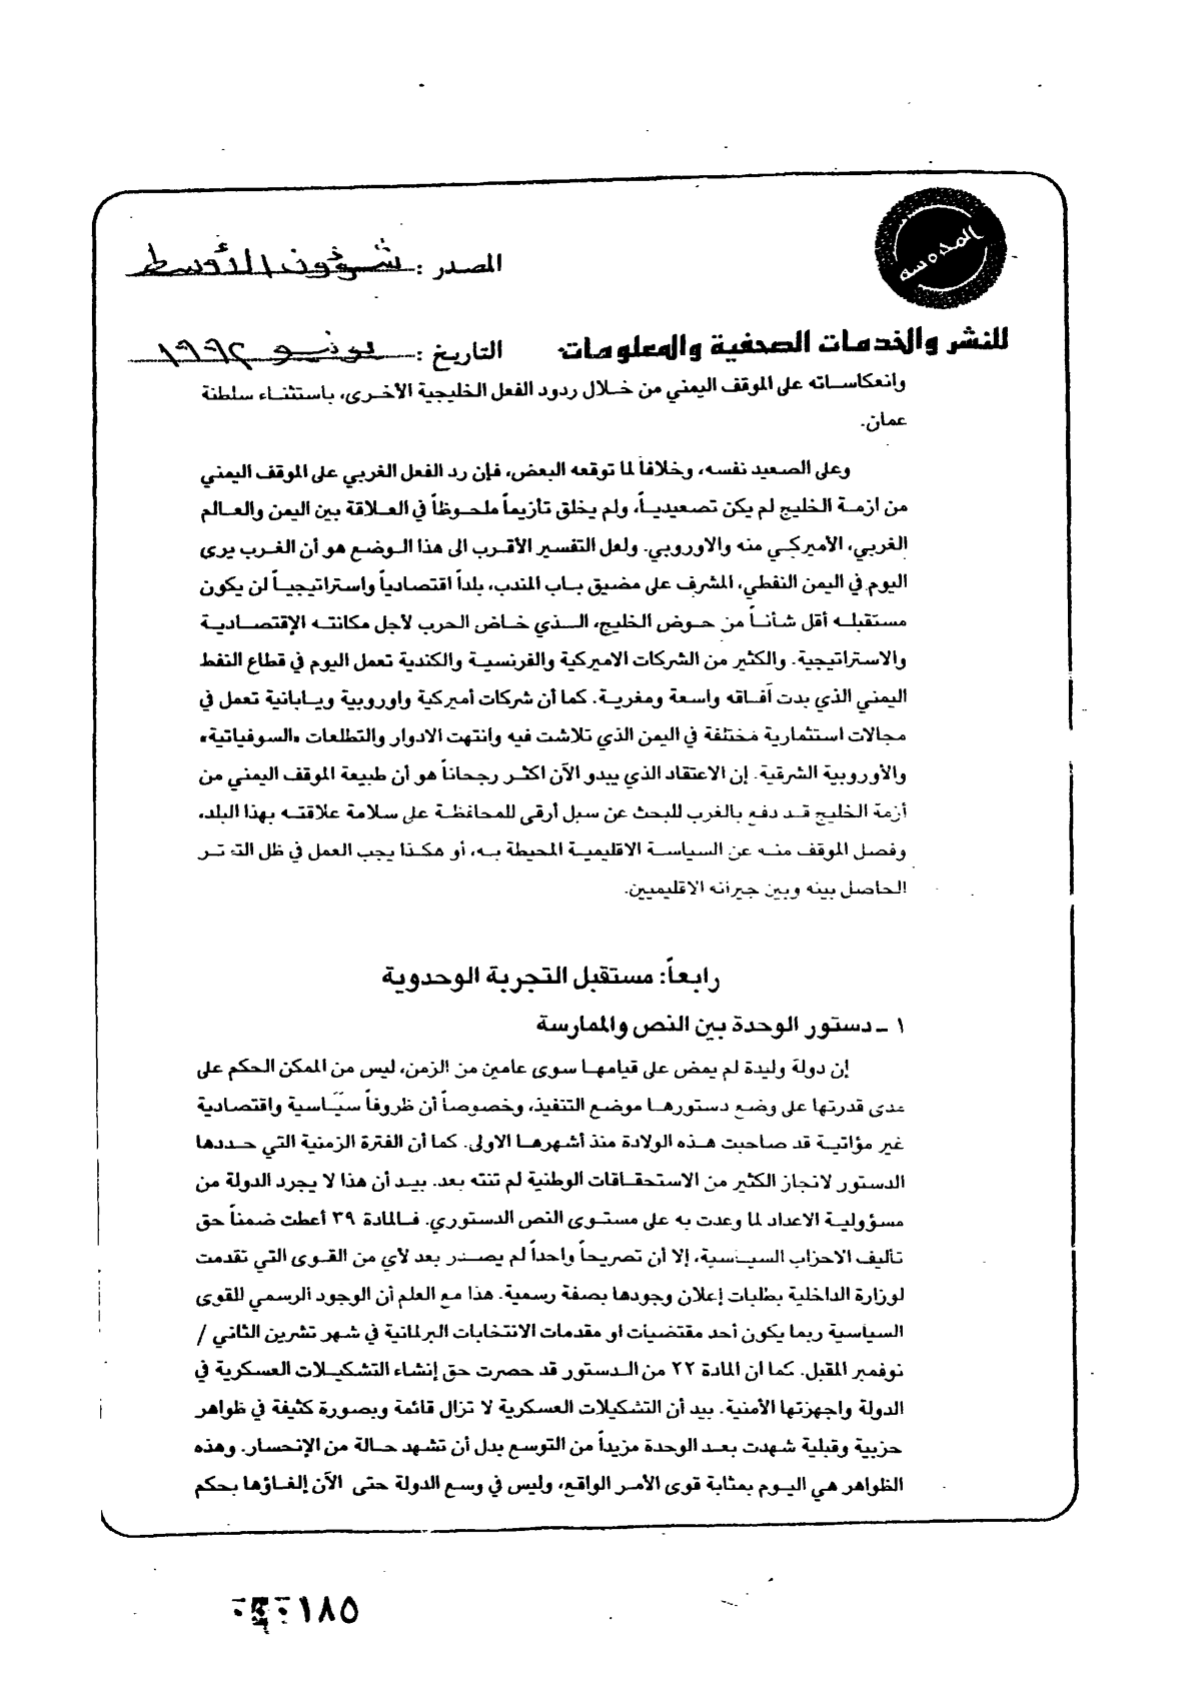 المصدر : شؤون الأوسط
للنشر والخدمات الصحفية والمعلومات
التاريخ : يونيو ١٩٩٢
وانعكاساته على الموقف اليمني من خلال ردود الفعل الخليجية الأخرى، باستثناء سلطنة
عمان.
وعلى الصعيد نفسه، وخلافاً لما توقعه البعض، فإن رد الفعل الغربي على الموقف اليمني
من ازمة الخليج لم يكن تصعيدياً، ولم يخلق تأزيماً ملحوظاً في العلاقة بين اليمن والعالم
الغربي، الأميركي منه والاوروبي. ولعل التفسير الأقرب الى هذا الوضع هو أن الغرب يرى
اليوم في اليمن النفطي، المشرف على مضيق باب المندب، بلداً اقتصادياً واستراتيجياً لن يكون
مستقبله أقل شأناً من حوض الخليج، الذي خاض الحرب لأجل مكانته الإقتصادية
والاستراتيجية. والكثير من الشركات الاميركية والفرنسية والكندية تعمل اليوم في قطاع النفط
اليمني الذي بدت آفاقه واسعة ومغرية. كما أن شركات أميركية واوروبية ويابانية تعمل في
مجالات استثمارية مختلفة في اليمن الذي تلاشت فيه وانتهت الادوار والتطلعات «السوفياتية»
والأوروبية الشرقية. إن الاعتقاد الذي يبدو الآن اكثر رجحاناً هو أن طبيعة الموقف اليمني من
أزمة الخليج قد دفع بالغرب للبحث عن سبل أرقى للمحافظة على سلامة علاقته بهذا البلد،
وفصل الموقف منه عن السياسة الاقليمية المحيطة به، أو هكذا يجب العمل في ظل التوتر
الحاصل بينه وبين جيرانه الاقليميين.
رابعاً: مستقبل التجربة الوحدوية
١ ـ دستور الوحدة بين النص والممارسة
إن دولة وليدة لم يمض على قيامها سوى عامين من الزمن، ليس من الممكن الحكم على
مدى قدرتها على وضع دستورها موضع التنفيذ، وخصوصاً أن ظروفاً سياسية واقتصادية
غير مؤاتية قد صاحبت هذه الولادة منذ أشهرها الاولى. كما أن الفترة الزمنية التي حددها
الدستور لانجاز الكثير من الاستحقاقات الوطنية لم تنته بعد. بيد أن هذا لا يجرد الدولة من
مسؤولية الاعداد لما وعدت به على مستوى النص الدستوري. فالمادة ٣٩ أعطت ضمناً حق
تأليف الاحزاب السياسية، إلا أن تصريحاً واحداً لم يصدر بعد لأي من القوى التي تقدمت
لوزارة الداخلية بطلبات إعلان وجودها بصفة رسمية. هذا مع العلم أن الوجود الرسمي للقوى
السياسية ربما يكون أحد مقتضيات او مقدمات الانتخابات البرلمانية في شهر تشرين الثاني /
نوفمبر المقبل. كما ان المادة ٢٢ من الدستور قد حصرت حق إنشاء التشكيلات العسكرية في
الدولة واجهزتها الأمنية. بيد أن التشكيلات العسكرية لا تزال قائمة وبصورة كثيفة في ظواهر
حزبية وقبلية شهدت بعد الوحدة مزيداً من التوسع بدل أن تشهد حالة من الإنحسار. وهذه
الظواهر هي اليوم بمثابة قوى الأمر الواقع، وليس في وسع الدولة حتى الآن إلغاؤها بحكم
١٨٥